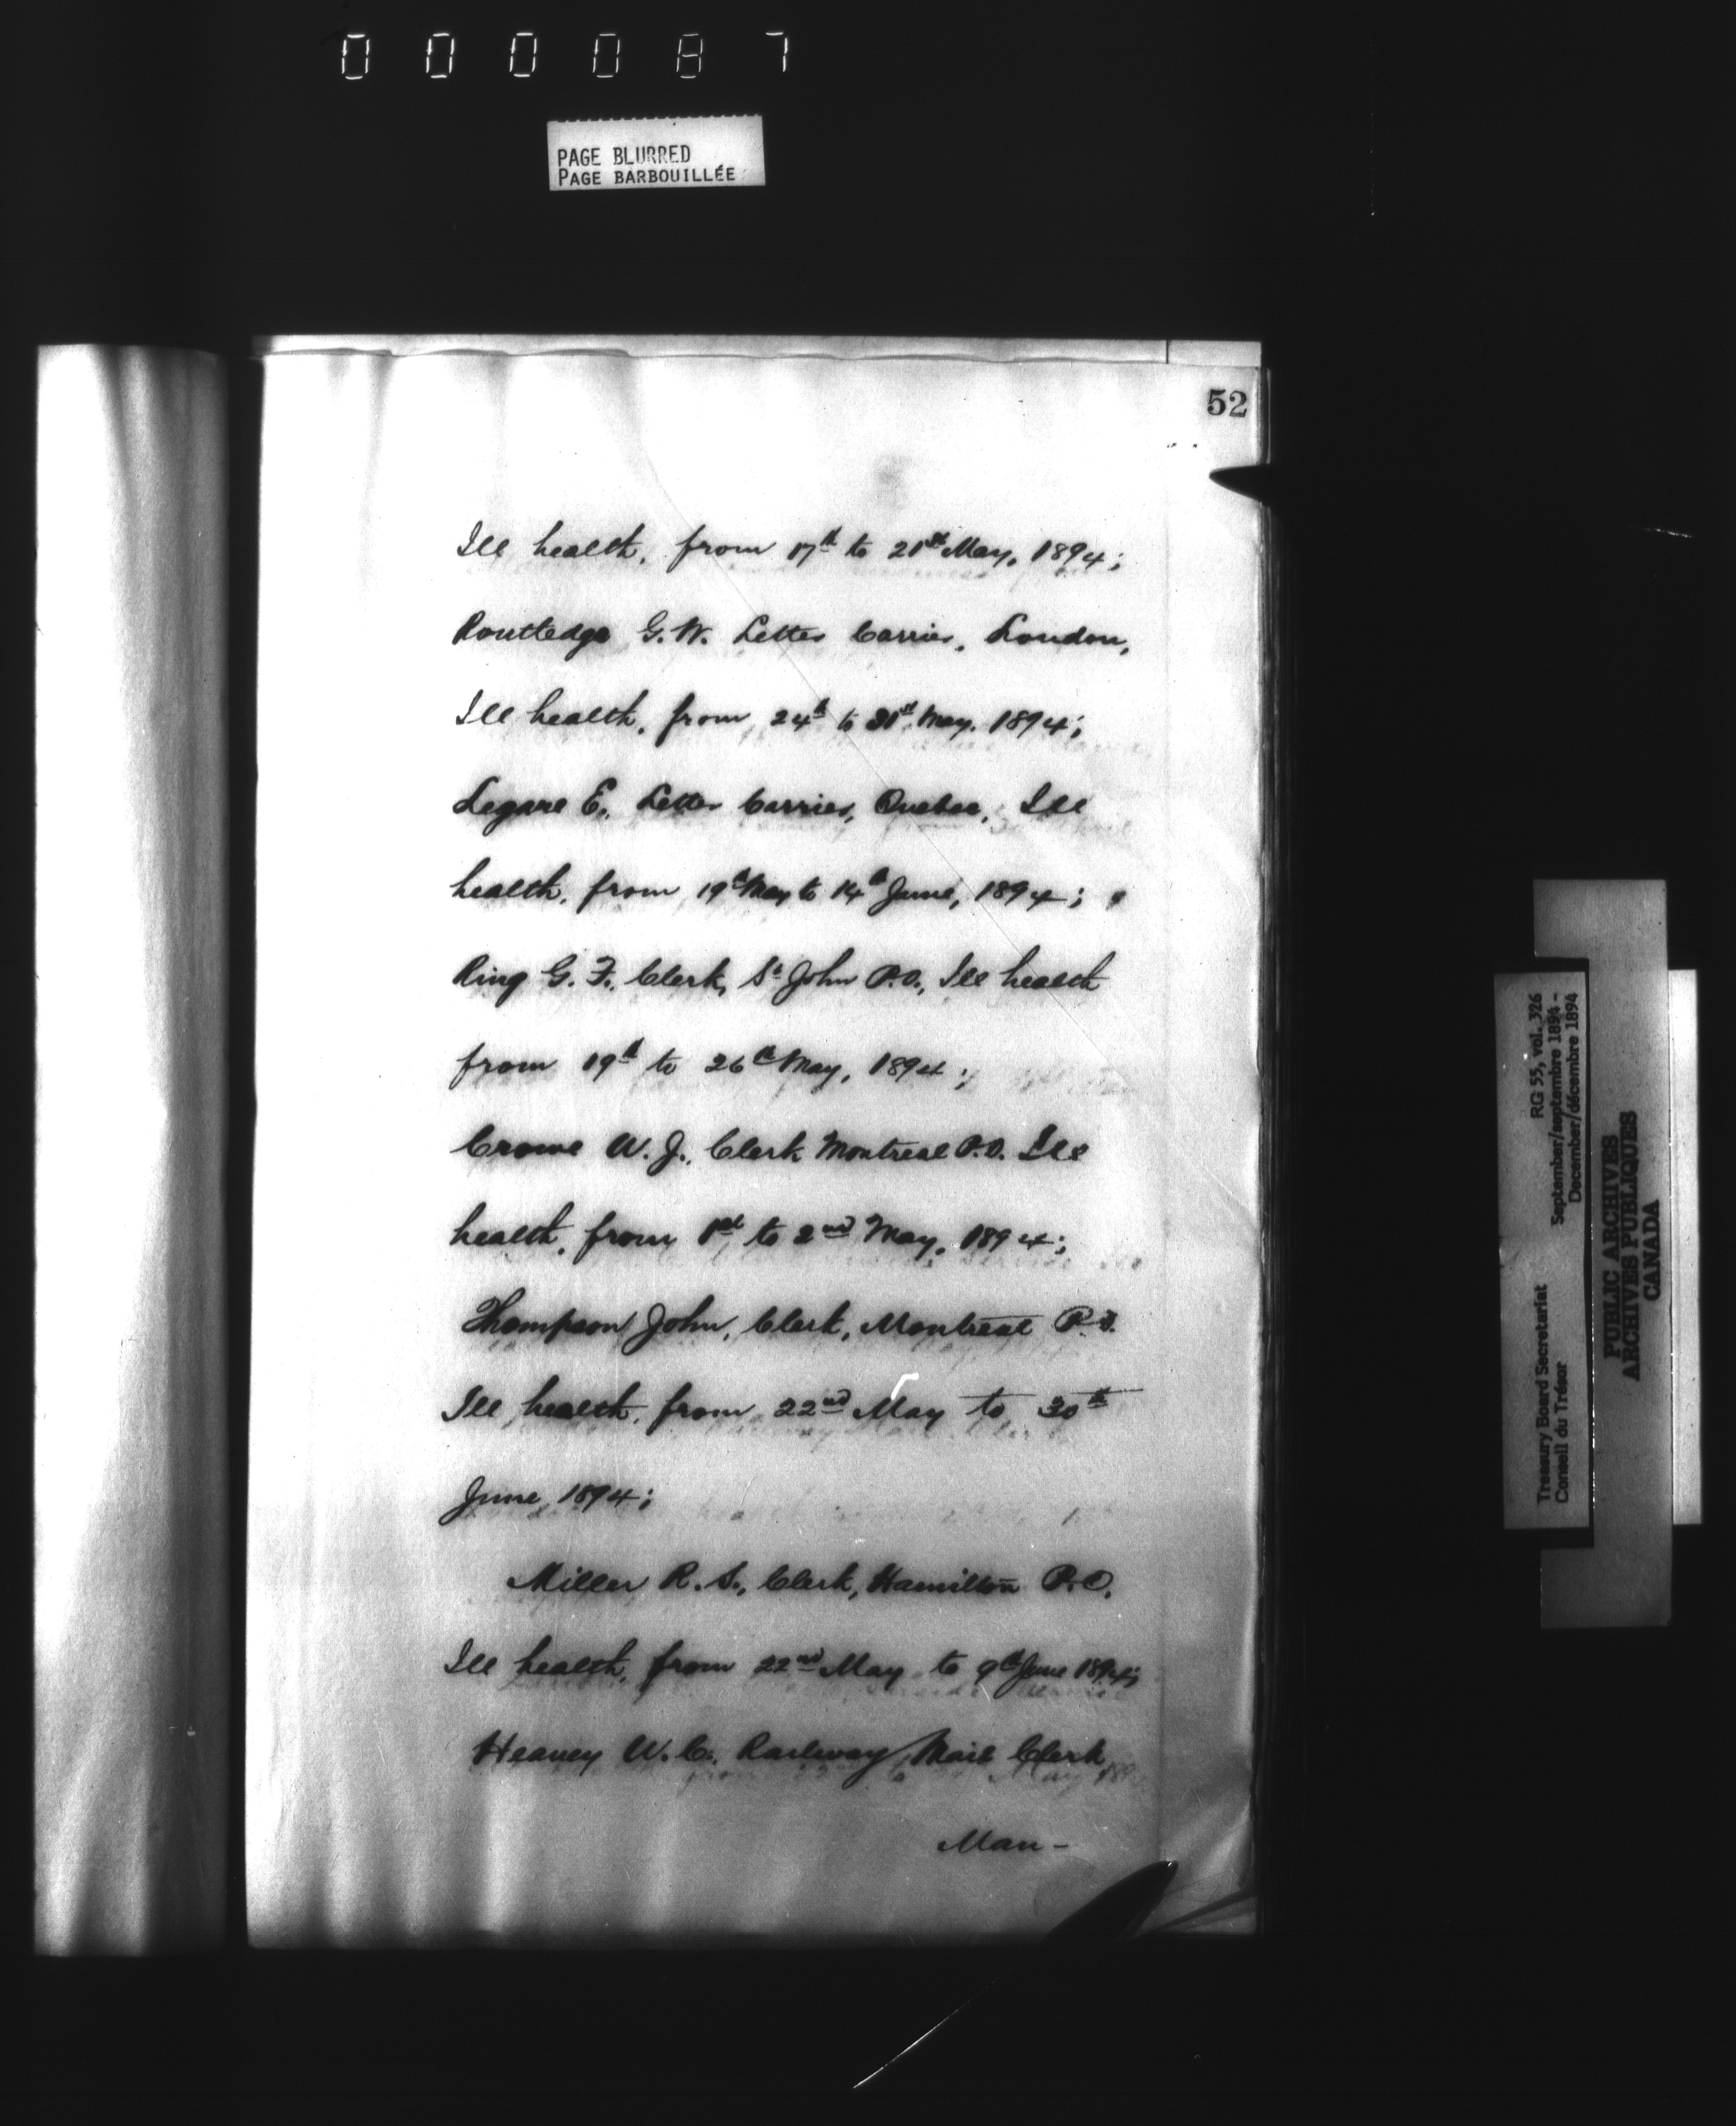 000087
PAGE BLURRED
PAGE BARBOUILLÉE
52
Ill health, from 17th to 21st May, 1894;
Routledge G. W. Letter Carrier, London,
Ill health, from 24th to 31st May. 1894;
Legare E., Letter Carrier, Quebec, Ill
health, from 19th May to 14th June, 1894;
Ring G. F., Clerk, St John P.O., Ill health
from 19th to 26th May, 1894;
Crowe W. J., Clerk Montreal P.O. Ill
health, from 1st to 2nd May, 1894;
Thompson John, Clerk, Montreal P.O.
Ill health, from 22nd May to 30th
June, 1894;
Miller R. S., Clerk, Hamilton P.O.
Ill health, from 22nd May to 9th June 1894;
Heaney W. C. Railway Mail Clerk
Man-
Treasury Board Secretariat
Conseil du Trésor
RG 55, vol. 326
September/septembre 1894 -
December/décembre 1894
PUBLIC ARCHIVES
ARCHIVES PUBLIQUES
CANADA